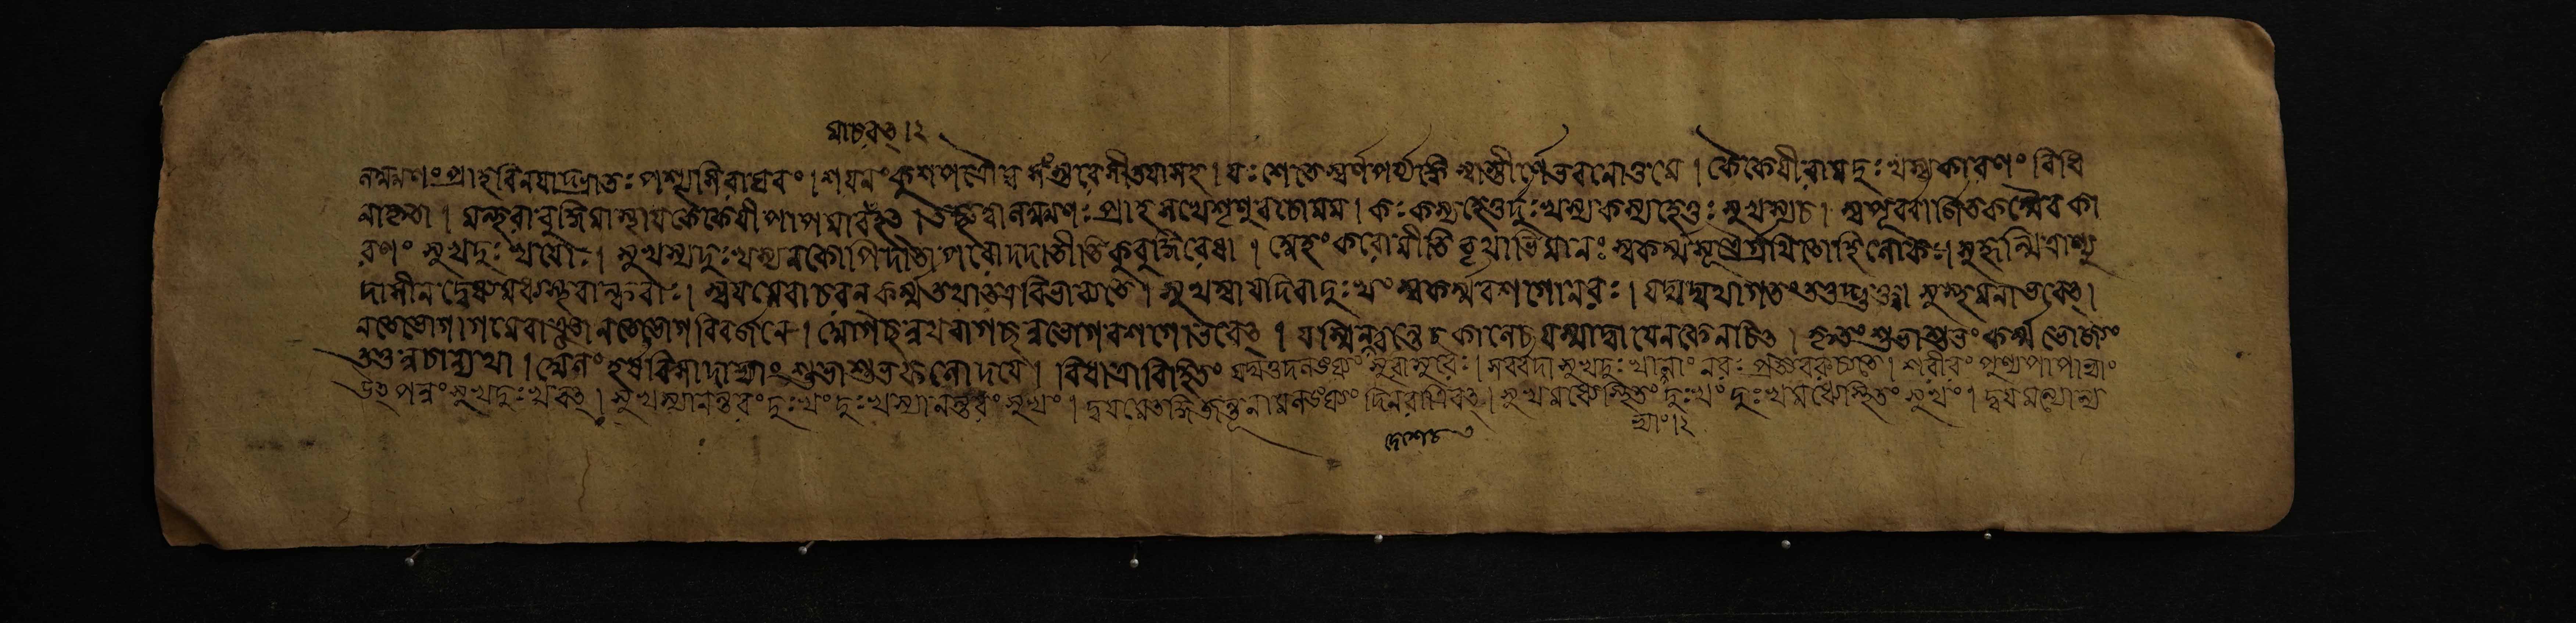 মাচরৎ।২
লক্ষ্মণং প্রাহ বিনয়াদ্ভ্রাতঃ পশ্যসি রাঘবং । শয়ানং কুশপত্রৌঘসংস্তরে সীতয়া সহ । যঃ শেতে স্বর্ণপর্য্যঙ্কে স্বাস্তীর্ণে ভবনোত্তমে । কৈকেয়ী রামদুঃখস্য কারণং বিধি
না কৃতা । মন্থরাবুদ্ধিমাস্থায় কৈকেয়ী পাপমাচরৎ । তচ্ছ্রুত্বা লক্ষ্মণঃ প্রাহ সখে শৃণু বচো মম । কঃ কস্য হেতুর্দুঃখস্য কস্য হেতুঃ সুখস্য চ । স্বপূর্ব্বার্জিতকর্ম্মৈব কা
রণং সুখদুঃখয়োঃ । সুখস্য দুঃখস্য ন কোপি দাতা পরো দদাতীতি কুবুদ্ধিরেষা । অহং করোমীতি বৃথাভিমানঃ স্বকর্ম্মসূত্রগ্রথিতো হি লোকঃ । সুহৃন্মিত্রার্য্যু
দাসীনদ্বেষ্যমধ্যস্থবান্ধবাঃ । স্বয়মেবাচরন কর্ম্ম তথা তত্র বিভাব্যতে । সুখম্বা যদিবা দুঃখং স্বকর্ম্মবশগো নরঃ । যদ্যদ্যথাগতং তত্তদ্ভুক্ত্বা সুস্থমনা ভবেৎ ।
ন মে ভোগাগমে বাঞ্ছা ন মে ভোগবিবর্জনে । আগচ্ছত্বথবাগচ্ছত্বভোগবশগো ভবেৎ । যস্মিন্ চ কালে চ যস্মাদ্বা যেন কেন চিৎ । কৃতং শুভাশুভং কর্ম্ম ভোজ্যং
তত্তত্র নান্যথা । অলং হর্ষবিষাদাভ্যাং শুভাশুভফলোদয়ে । বিধাত্রা বিহিতং যদ্যত্তদলঙ্ঘ্যং সুরাসুরৈঃ । সর্ব্বদা সুখদুঃখাভ্যাং নরঃ প্রত্যবরুধ্যতে । শরীরং পুণ্যপাপাভ্যাং
উৎপন্নং সুখদুঃখবৎ । সুখস্যানন্তরং দুঃখং দুঃখস্যানন্তরং সুখং । দ্বয়মেতদ্ধি জন্তূনামলঙ্ঘ্যং দিনরাত্রিবৎ । সুখমধ্যে স্থিতং দুঃখং দুঃখমধ্যে স্থিতং সুখং । দ্বয়মন্যোন্য
দেশেচ ভ্যাং।২